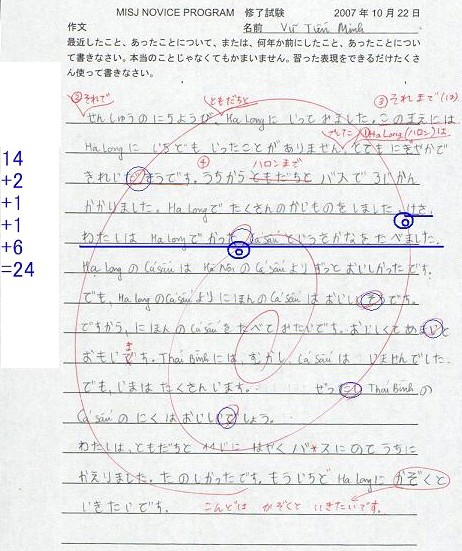 MISJ NOVICE PROGRAM 修了試験 2007 年 10 月 22 日
作文 名前 Vũ Tiến Minh
最近したこと、あったことについて、または、何年か前にしたこと、あったことについ
て書きなさい。本当のことじゃなくてもかまいません。習った表現をできるだけたくさ
ん使って書きなさい。
②それで ともだちと ③それまで(は)
せんしゅうのにちようび、Ha Longに じってみました。このまえには
でした ①Ha Long(ハロン)は
Ha Longに じちども じったことが ありません。とても にぎやかで
④ ハロンまで
きれじだそうです。うちから ともだちと バスで 3じかん
かかりました。Ha Longで たくさんの かじものをしました。けさ、
わたしは Ha Longで かった Cá sấu と じうさかなを たべました。
Ha Longの Cá sấuは Hà Nôiの Cá sấuより ずっと おじしかったです。
でも、Ha Longの Cá sấuより にほんの Cá sấuは おじしそうです。
ですから、にほんの Cá sấuを たべてみたいです。おじしくて あまじと
ま
おもじです。Thái Bìnhには、むかし、Cá sấuは じませんでした。
でも、じまは たくさん じます。 ぜったじ Thái Bìnhの
Cá sấuの にくは おじしじでしょう。
わたしは、ともだちと はやく バスに のて うちに
かえりました。たのしかったです。もう じちど Ha Longに かぞくと
じきたじです。 こんどは かぞくと いきたいです。
14
+2
+1
+1
+6
=24